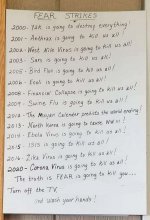 FEAR STRIKES
2000- Y2K is going to destroy everything!
2001- Anthrax is going to kill us all!
2002- West Nile Virus is going to kill us all!
2003- Sars is going to kill us all!
2005- Bird Flu is going to kill us all!
2006- Ecoli is going to kill us all!
2008- Financial Collapse is going to kill us all!
2009- Swine Flu is going to kill us all!
2012- The Mayan Calendar predicts the world ending!
2013- North Korea is going to cause WW III!
2014- Ebola Virus is going to kill us all!
2015- ISIS is going to kill us all!
2016- Zika Virus is going to kill us all!
2020- Corona Virus is going to kill us all!
The truth is FEAR is going to kill you...
Turn off the TV
and wash your hands!